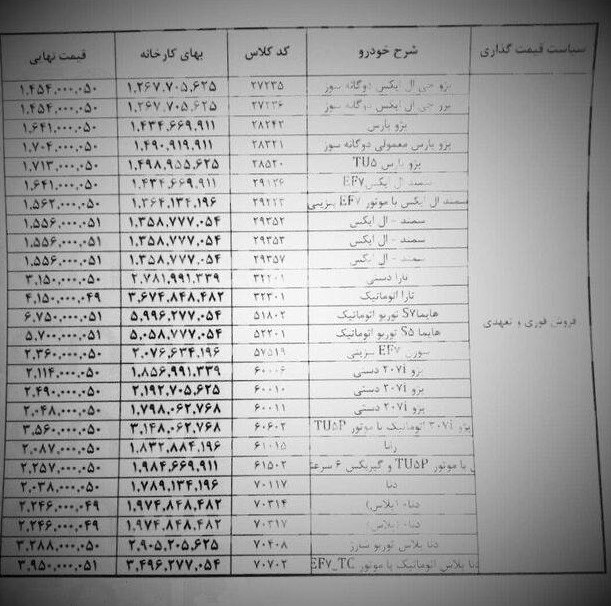 سیاست قیمت گذاری شرح خودرو کد کلاس بهای کارخانه قیمت نهایی
پژو جی ال ایکس دوگانه سوز ۲۷۲۳۵ ۱.۲۶۷.۷۰۵.۶۲۵ ۱.۴۵۴.۰۰۰.۰۵۰
پژو جی ال ایکس دوگانه سوز ۲۷۲۳۶ ۱.۲۶۷.۷۰۵.۶۲۵ ۱.۴۵۴.۰۰۰.۰۵۰
پژو پارس ۲۸۲۴۲ ۱.۴۳۴.۶۶۹.۹۱۱ ۱.۶۴۱.۰۰۰.۰۵۰
پژو پارس معمولی دوگانه سوز ۲۸۳۲۱ ۱.۴۹۰.۹۱۹.۹۱۱ ۱.۷۰۴.۰۰۰.۰۵۰
پژو پارس TU۵ ۲۸۵۲۰ ۱.۴۹۸.۹۵۵.۶۲۵ ۱.۷۱۳.۰۰۰.۰۵۰
سمند ال ایکس EF۷ ۲۹۱۳۶ ۱.۴۳۴.۶۶۹.۹۱۱ ۱.۶۴۱.۰۰۰.۰۵۰
سمند ال ایکس با موتور EF۷ بنزینی ۲۹۲۲۳ ۱.۳۶۴.۱۳۴.۱۹۶ ۱.۵۶۲.۰۰۰.۰۵۰
سمند - ال ایکس ۲۹۳۵۲ ۱.۳۵۸.۷۷۷.۰۵۴ ۱.۵۵۶.۰۰۰.۰۵۱
سمند - ال ایکس ۲۹۳۵۳ ۱.۳۵۸.۷۷۷.۰۵۴ ۱.۵۵۶.۰۰۰.۰۵۱
سمند - ال ایکس ۲۹۳۵۷ ۱.۳۵۸.۷۷۷.۰۵۴ ۱.۵۵۶.۰۰۰.۰۵۱
تارا دستی ۳۲۲۰۱ ۲.۷۸۱.۹۹۱.۳۳۹ ۳.۱۵۰.۰۰۰.۰۵۰
تارا اتوماتیک ۳۲۳۰۱ ۳.۶۷۴.۸۴۸.۴۸۲ ۴.۱۵۰.۰۰۰.۰۴۹
هایما S۷ توربو اتوماتیک ۵۱۸۰۲ ۵.۹۹۶.۲۷۷.۰۵۴ ۶.۷۵۰.۰۰۰.۰۵۱
فروش فوری و تعهدی هایما S۵ توربو اتوماتیک ۵۲۲۰۱ ۵.۰۵۸.۷۷۷.۰۵۴ ۵.۷۰۰.۰۰۰.۰۵۱
سورن EF۷ بنزینی ۵۷۵۱۹ ۲.۰۷۶.۶۳۴.۱۹۶ ۲.۳۶۰.۰۰۰.۰۵۰
پژو ۲۰۷i دستی ۶۰۰۰۶ ۱.۸۵۶.۹۹۱.۳۳۹ ۲.۱۱۴.۰۰۰.۰۵۰
پژو ۲۰۷i دستی ۶۰۰۱۰ ۲.۱۹۲.۷۰۵.۶۲۵ ۲.۴۹۰.۰۰۰.۰۵۰
پژو ۲۰۷i دستی ۶۰۰۱۱ ۱.۷۹۸.۰۶۲.۷۶۸ ۲.۰۴۸.۰۰۰.۰۵۰
پژو ۲۰۷i اتوماتیک با موتور TU۵P ۶۰۶۰۲ ۳.۱۴۸.۰۶۲.۷۶۸ ۳.۵۶۰.۰۰۰.۰۵۰
رانا ۶۱۰۱۵ ۱.۸۳۲.۸۸۴.۱۹۶ ۲.۰۸۷.۰۰۰.۰۵۰
با موتور TU۵P و گیربکس ۶ سرعته ۶۱۵۰۲ ۱.۹۸۴.۶۶۹.۹۱۱ ۲.۲۵۷.۰۰۰.۰۵۰
دنا ۷۰۱۱۷ ۱.۷۸۹.۱۳۴.۱۹۶ ۲.۰۳۸.۰۰۰.۰۵۰
دنا+ (پلاس) ۷۰۳۱۴ ۱.۹۷۴.۸۴۸.۴۸۲ ۲.۲۴۶.۰۰۰.۰۴۹
دنا+ (پلاس) ۷۰۳۱۷ ۱.۹۷۴.۸۴۸.۴۸۲ ۲.۲۴۶.۰۰۰.۰۴۹
دنا پلاس توربو شارژ ۷۰۴۰۸ ۲.۹۰۵.۲۰۵.۶۲۵ ۳.۲۸۸.۰۰۰.۰۵۰
دنا پلاس اتوماتیک با موتور EF۷_TC ۷۰۷۰۲ ۳.۴۹۶.۲۷۷.۰۵۴ ۳.۹۵۰.۰۰۰.۰۵۱